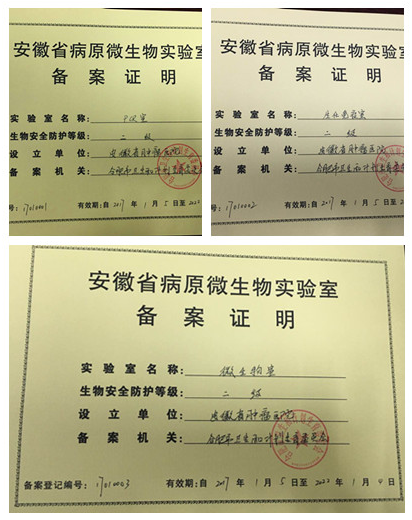 安徽省病原微生物实验室
备案证明
实验室名称: PCR室
生物安全防护等级: 二级
设立单位: 安徽省肿瘤医院
备案机关: 合肥市卫生和计划生育委员
号: 17010001 有效期: 自2017年1月5日至2022
安徽省病原微生物实验室
备案证明
实验室名称:
生物安全防护等级: 二级
设立单位: 安徽省肿瘤医院
备案机关: 合肥市卫生和计划生育委员
号: 17010002 有效期: 自2017年1月5日至2022
安徽省病原微生物实验室
备案证明
实验室名称: 微生物室
生物安全防护等级: 二级
设立单位: 安徽省肿瘤医院
备案机关: 合肥市卫生和计划生育委员会
备案登记编号: 17010003 有效期: 自2017年1月5日至2022年1月4日